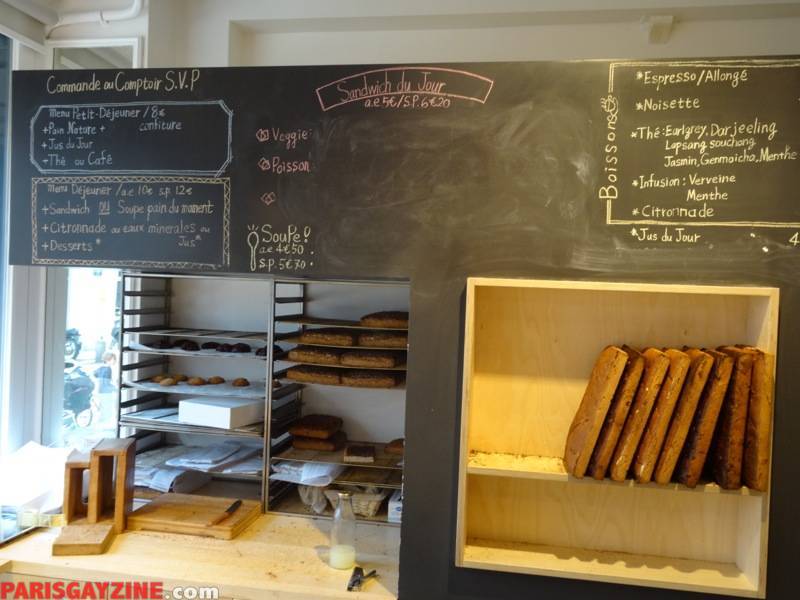 Commande au Comptoir S.V.P
Menu Petit-Déjeuner / 8€
+Pain Nature + confiture
+Jus du Jour
+Thé ou Café
Menu Déjeuner / a.e 10€ s.p. 12€
+Sandwich ou Soupe pain du moment
+Citronnade ou eaux minerales ou Jus*
+Desserts*
Sandwich du Jour
a.e 5€ / S.P. 6€20
Veggie:
Poisson:
Soupe!
a.e 4€50
S.P. 5€70
Boissons
*Espresso/Allongé
*Noisette
*Thé: Earlgrey, Darjeeling
Lapsang souchong
Jasmin, Genmaicha, Menthe
*Infusion: Verveine
Menthe
*Citronnade
*Jus du Jour 4
PARISGAYZINE.com